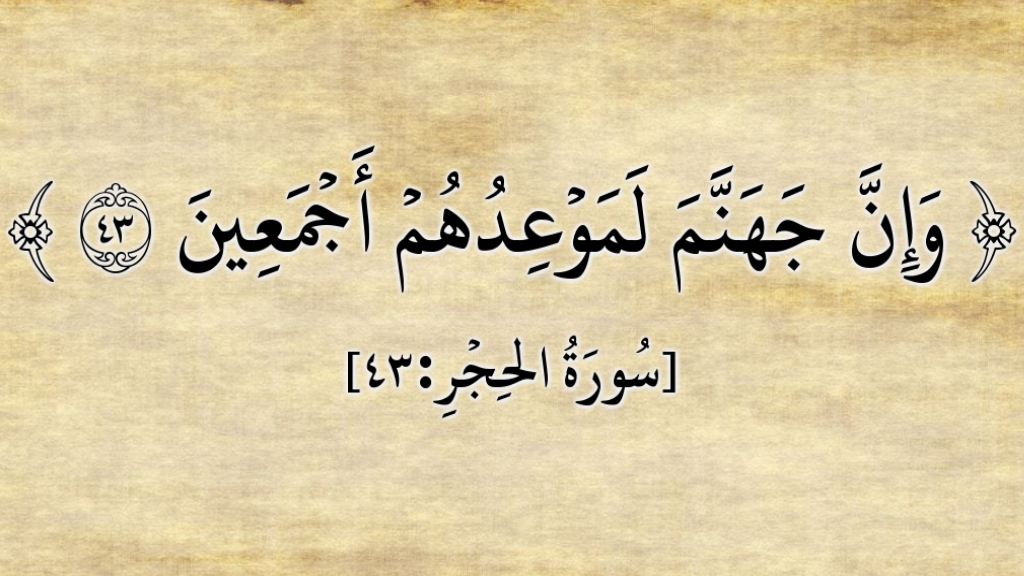 ﴿ وَإِنَّ جَهَنَّمَ لَمَوْعِدُهُمْ أَجْمَعِينَ ٤٣ ﴾
[سُورَةُ الحِجْرِ:٤٣]